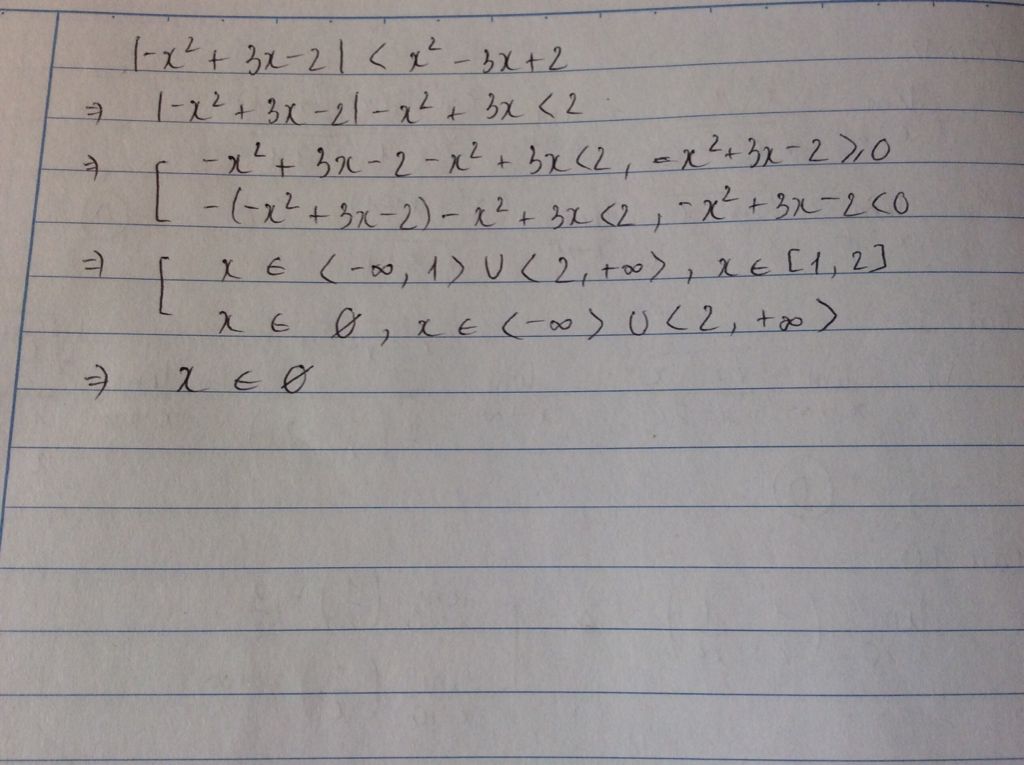 |-x² + 3x-2| < x² - 3x+2
⇒ |-x² + 3x-2| - x² + 3x < 2
⇒ [ -x² + 3x - 2 - x² + 3x<2, -x²+3x-2 ⩾0
-(-x² + 3x-2) - x² + 3x <2, -x² + 3x-2<0
⇒ [ x ∈ ⟨-∞, 1⟩ ∪ ⟨2, +∞⟩, x ∈ [1, 2]
x ∈ ∅, x ∈ ⟨-∞⟩ ∪ ⟨2, +∞⟩
⇒ x ∈ ∅